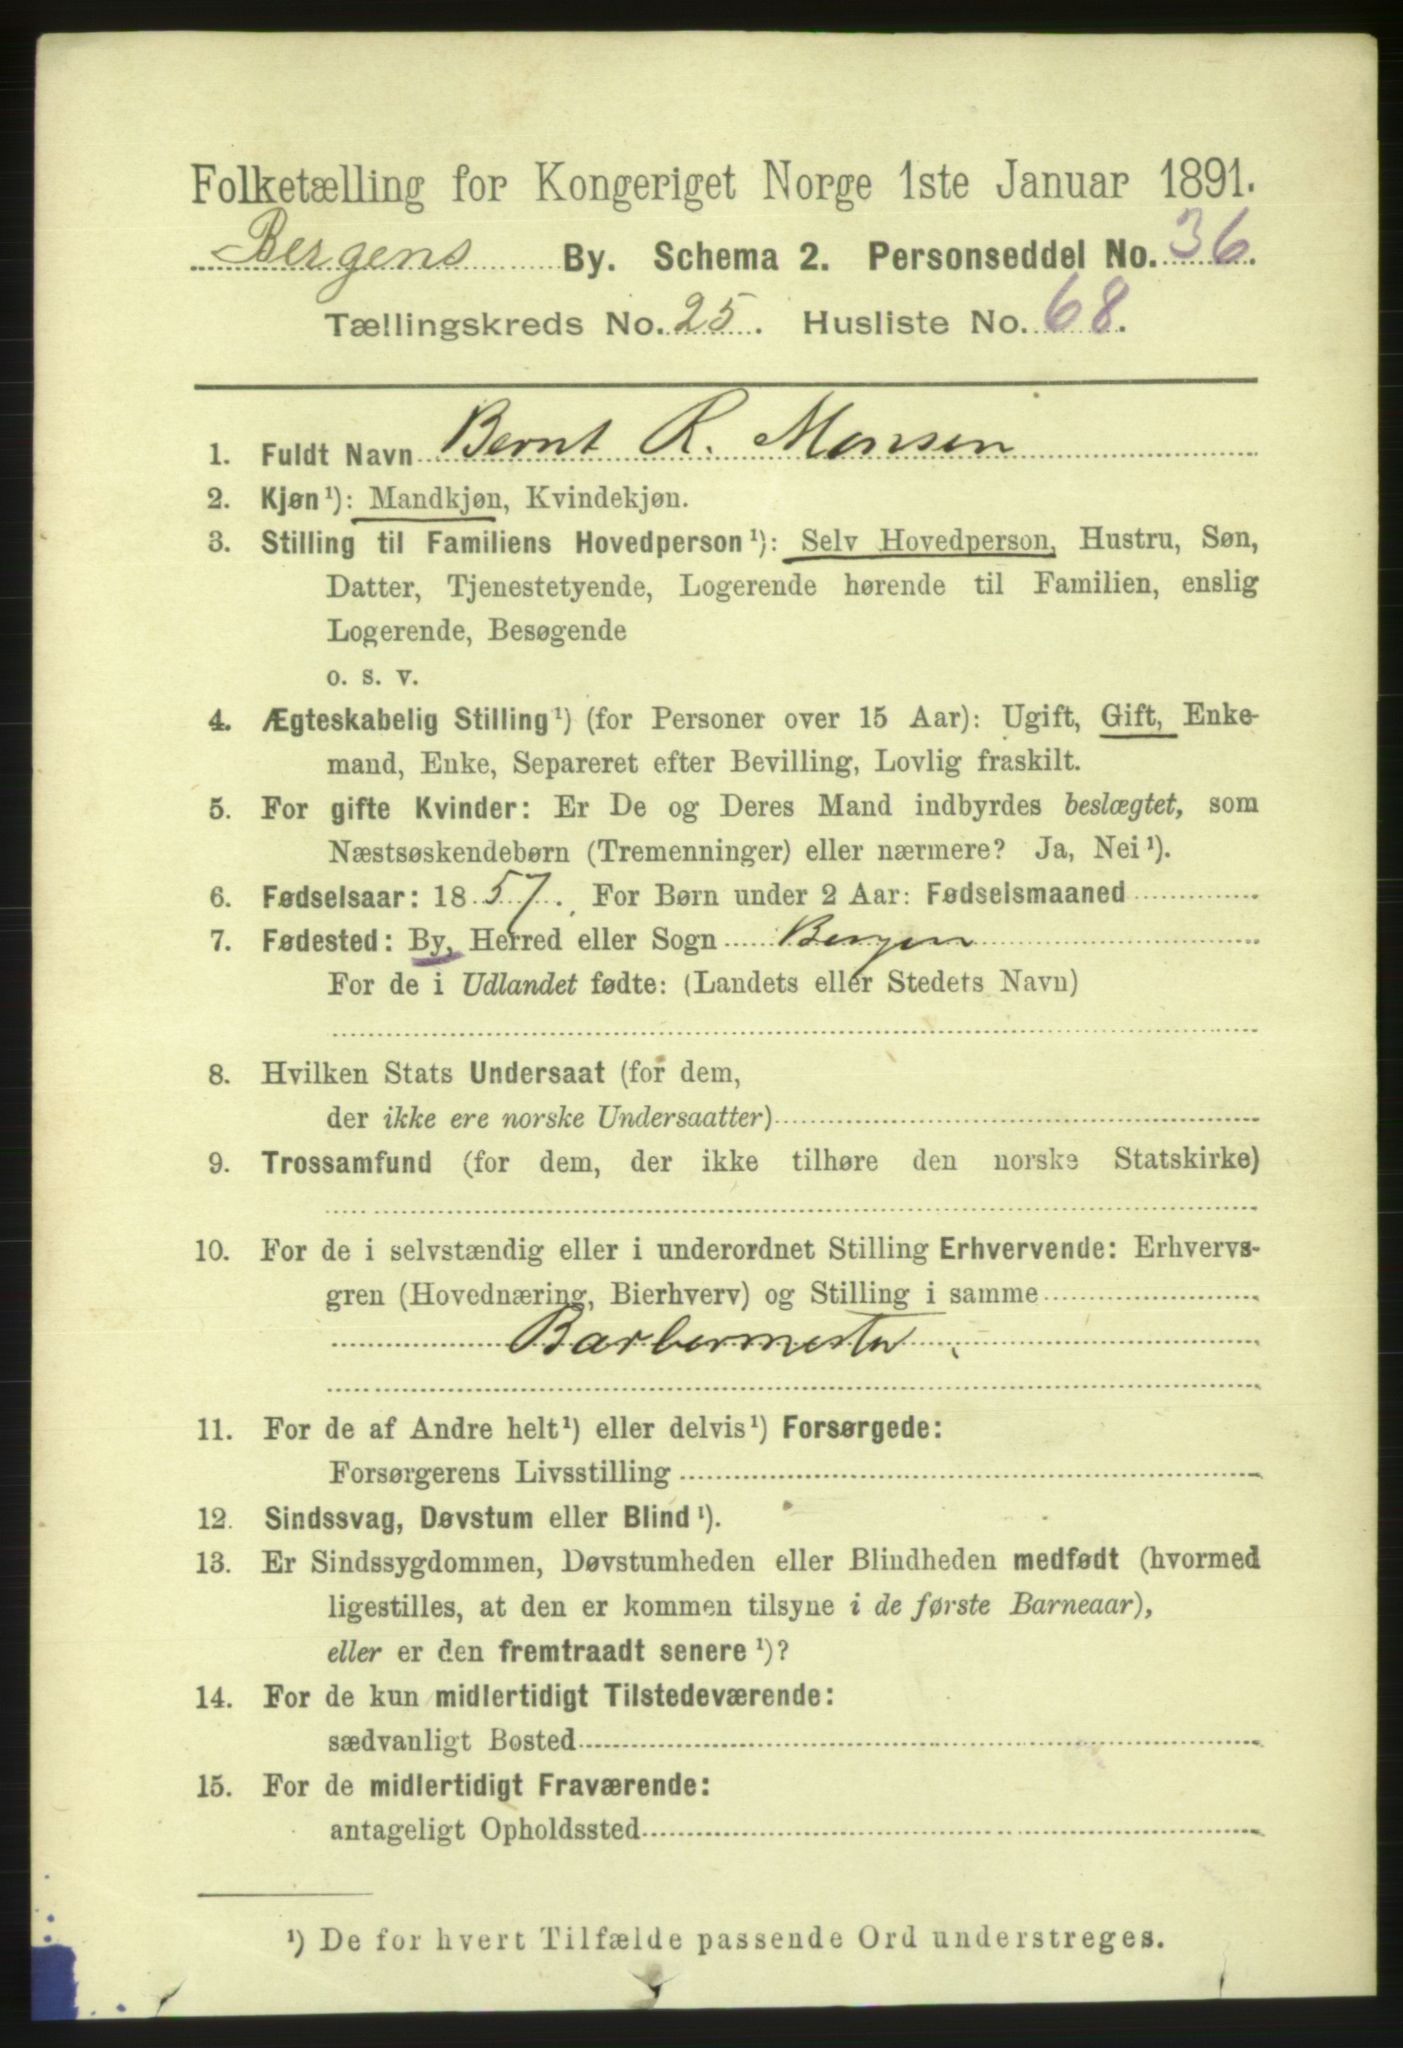 Folketælling for Kongeriget Norge 1ste Januar 1891.
Bergens By. Schema 2. Personseddel No. 36.
Tællingskreds No. 25. Husliste No. 68.
1. Fuldt Navn Bernt R. Monsen
2. Kjøn¹): Mandkjøn, Kvindekjøn.
3. Stilling til Familiens Hovedperson¹): Selv Hovedperson, Hustru, Søn,
Datter, Tjenestetyende, Logerende hørende til Familien, enslig
Logerende, Besøgende
o. s. v.
4. Ægteskabelig Stilling¹) (for Personer over 15 Aar): Ugift, Gift, Enke-
mand, Enke, Separeret efter Bevilling, Lovlig fraskilt.
5. For gifte Kvinder: Er De og Deres Mand indbyrdes beslægtet, som
Næstsøskendebørn (Tremenninger) eller nærmere? Ja, Nei¹).
6. Fødselsaar: 1857. For Børn under 2 Aar: Fødselsmaaned
7. Fødested: By, Herred eller Sogn Bergen
For de i Udlandet fødte: (Landets eller Stedets Navn)
8. Hvilken Stats Undersaat (for dem,
der ikke ere norske Undersaatter)
9. Trossamfund (for dem, der ikke tilhøre den norske Statskirke)
10. For de i selvstændig eller i underordnet Stilling Erhvervende: Erhvervs-
gren (Hovednæring, Bierhverv) og Stilling i samme
Barbermester.
11. For de af Andre helt¹) eller delvis¹) Forsørgede:
Forsørgerens Livsstilling
12. Sindssvag, Døvstum eller Blind¹).
13. Er Sindssygdommen, Døvstumheden eller Blindheden medfødt (hvormed
ligestilles, at den er kommen tilsyne i de første Barneaar),
eller er den fremtraadt senere¹)?
14. For de kun midlertidigt Tilstedeværende:
sædvanligt Bosted
15. For de midlertidigt Fraværende:
antageligt Opholdssted
¹) De for hvert Tilfælde passende Ord understreges.